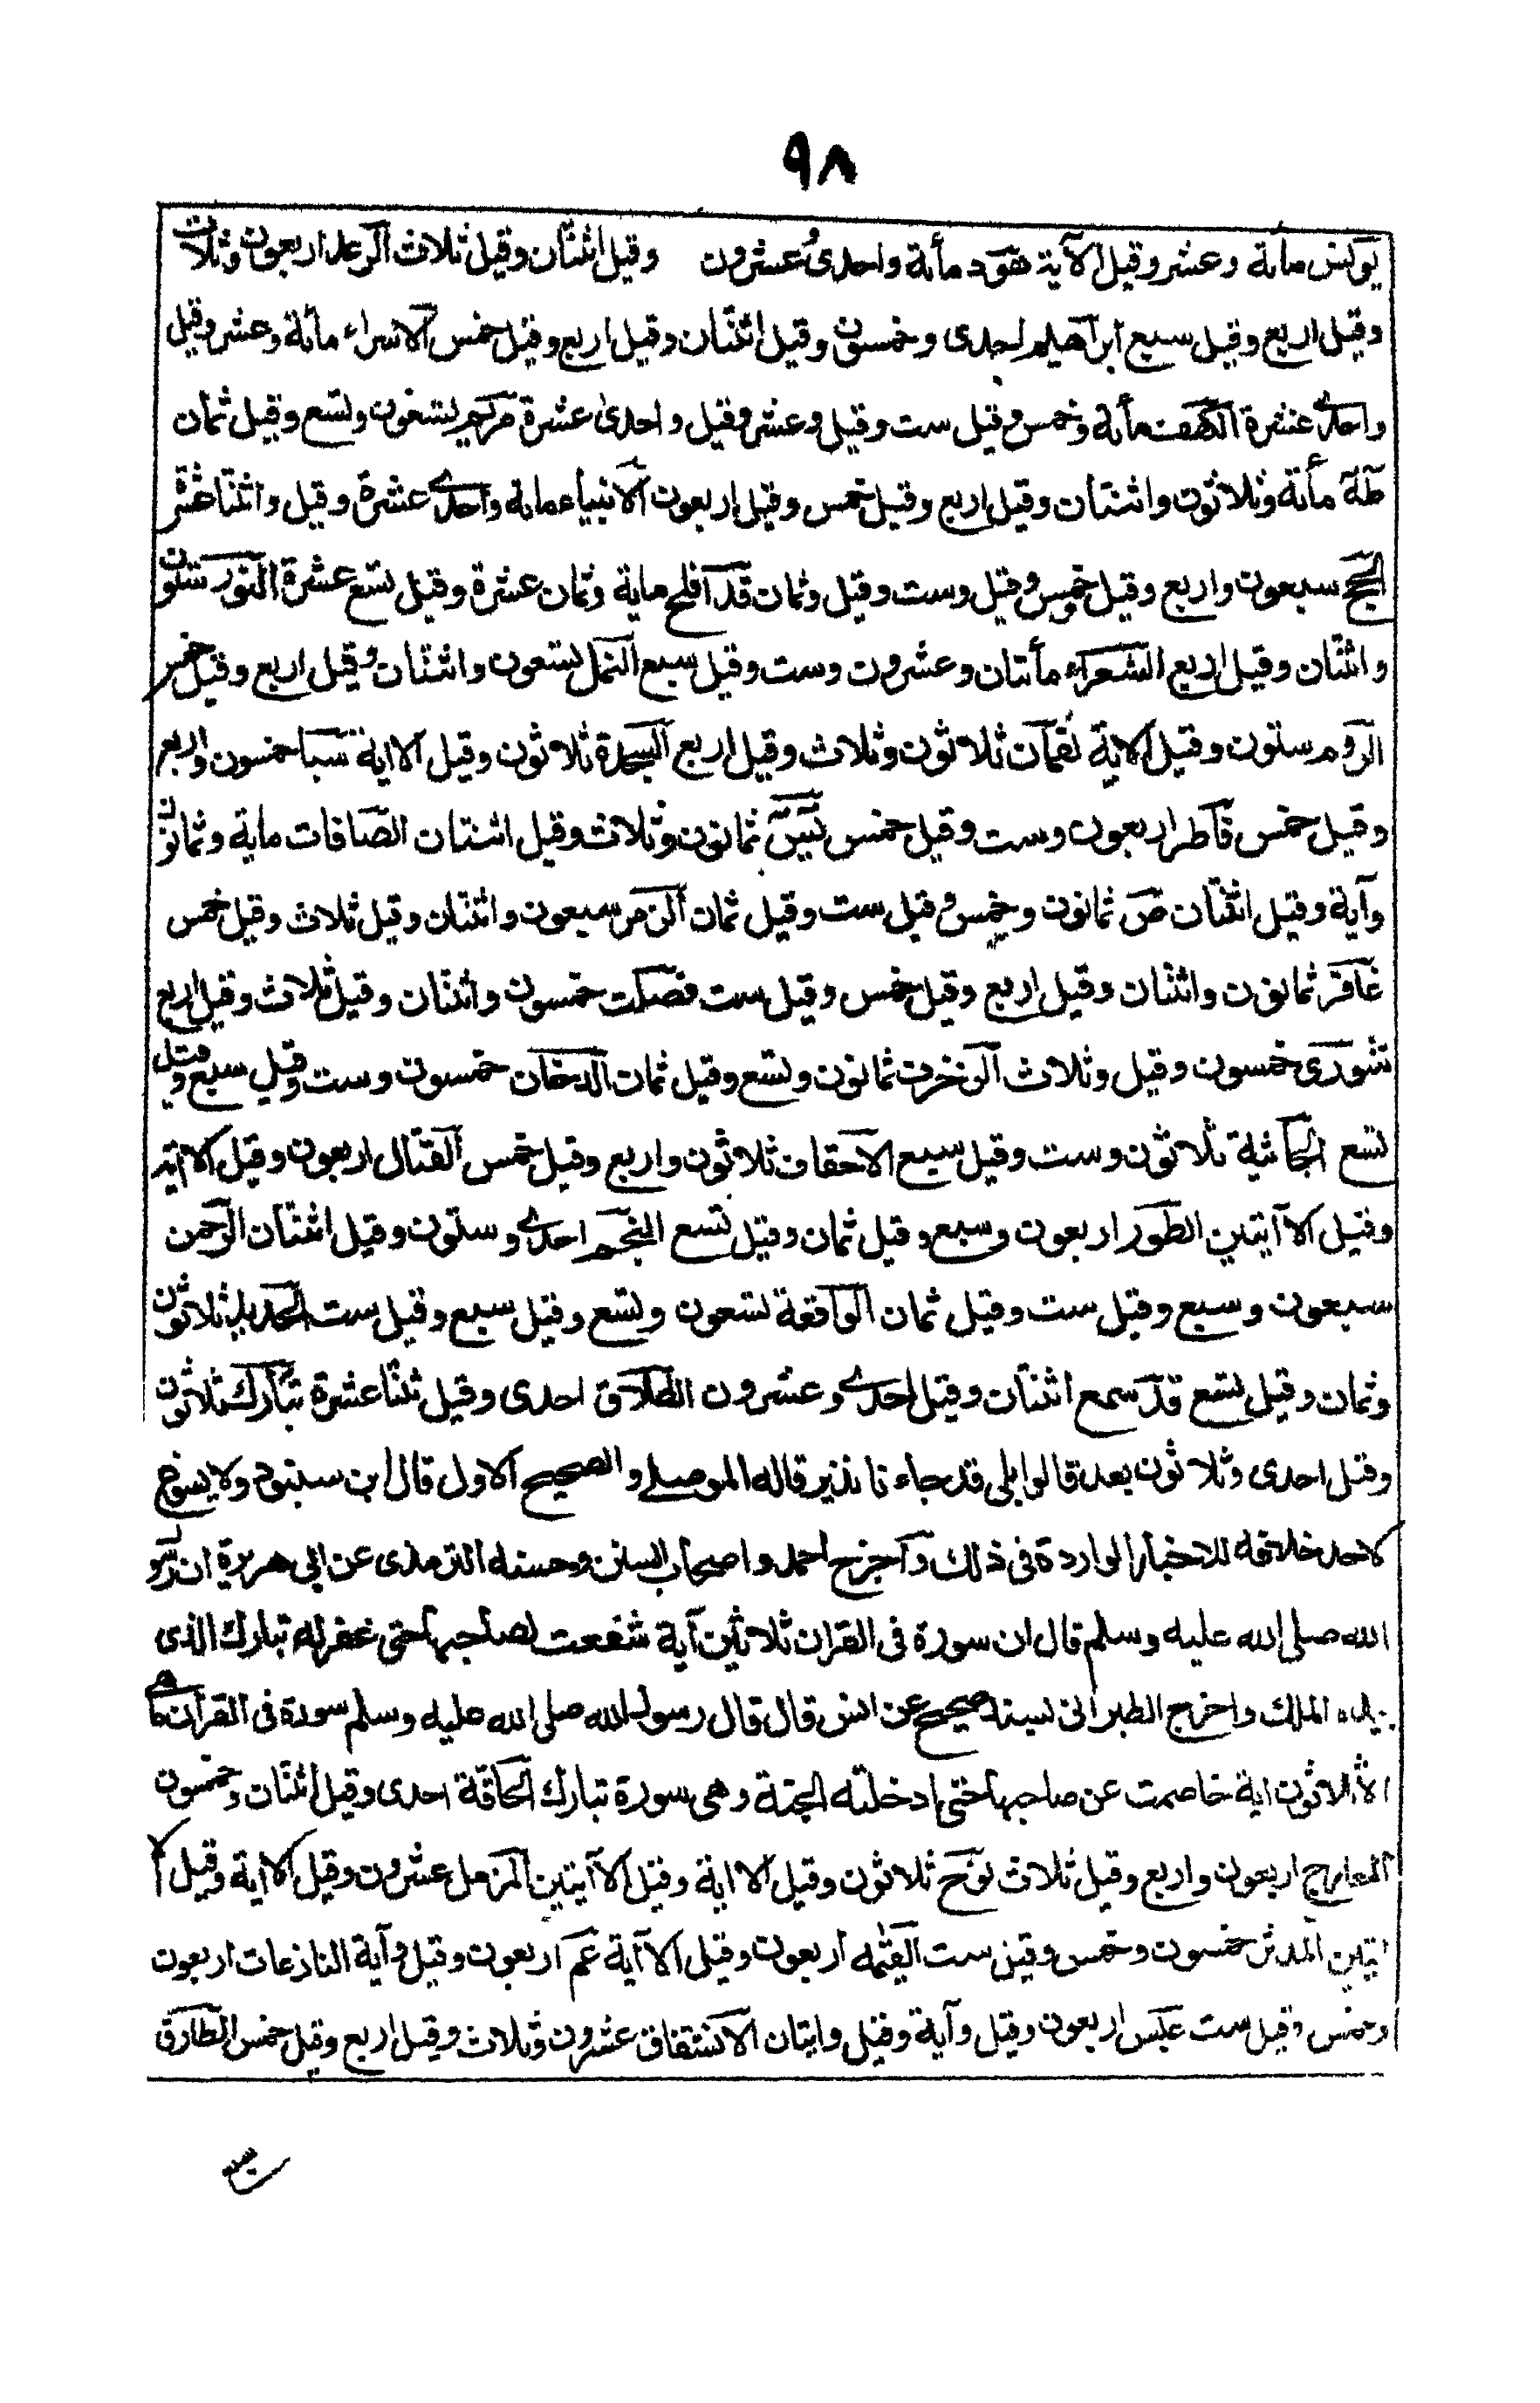 ٩٨
يونس مأية وعشر وقيل الآية هود مأية واحدى وعشرون وقيل اثنتان وقيل ثلاث الرعد اربعون وثلاث
وقيل اربع وقيل سبع ابراهيم احدى وخمسون وقيل اثنتان وقيل اربع وقيل خمس الاسراء مأية وعشر وقيل
واحدى عشرة الكهف مأية وخمس وقيل ست وقيل وعشر وقيل واحدى عشرة مريم تسعون وتسع وقيل ثمان
طه مأية وثلاثون واثنتان وقيل اربع وقيل خمس وقيل اربعون الانبياء مماية واحدى عشرة وقيل واثنتا عشر
الحج سبعون واربع وقيل خمس وقيل وست وقيل وثمان قد افلح ماية وثمان عشرة وقيل تسع عشرة النور ستون
واثنتان وقيل اربع الشعراء مأتان وعشرون وست وقيل سبع النمل تسعون واثنتان وقيل اربع وقيل خمس
الروم ستون وقيل الاية لقمان ثلاثون وثلاث وقيل اربع السجدة ثلاثون وقيل الا اية سبا خمسون واربع
وقيل خمس فاطر اربعون وست وقيل خمس يس ثمانون وثلاث وقيل اثنتان الصافات ماية وثمانون
وآية وقيل اثنتان ص ثمانون وخمس وقيل ست وقيل ثمان الزمر سبعون واثنتان وقيل ثلاث وقيل خمس
غافر ثمانون واثنتان وقيل اربع وقيل خمس وقيل ست فصلت خمسون واثنتان وقيل ثلاث وقيل اربع
شورى خمسون وقيل وثلاث الزخرف ثمانون وتسع وقيل ثمان الدخان خمسون وست وقيل سبع وقيل
تسع الجاثية ثلاثون وست وقيل سبع الاحقاف ثلاثون واربع وقيل خمس القتال اربعون وقيل الا اية
وقيل الا آيتين الطور اربعون وسبع وقيل ثمان وقيل تسع النجم احدى وستون وقيل اثنتان الرحمن
سبعون وسبع وقيل ست وقيل ثمان الواقعة تسعون وتسع وقيل سبع وقيل ست الحديد ثلاثون
وثمان وقيل تسع قد سمع اثنتان وقيل احدى وعشرون الطلاق احدى وقيل ثنتا عشرة تبارك ثلاثون
وقيل احدى وثلاثون بعد قالوا بلى قد جاءنا نذير قاله الموصلى والصحيح الاول قال ابن سنبود ولا يسوغ
لاحد خلافه للاخبار الواردة فى ذلك واخرج احمد واصحاب السنن وحسنه الترمذى عن ابى هريرة ان رسو
الله صلى الله عليه وسلم قال ان سورة فى القران ثلاثين آية شفعت لصاحبها حتى غفر له تبارك الذى
بيده الملك واخرج الطبرانى بسند صحيح عن انس قال قال رسول الله صلى الله عليه وسلم سورة فى القرآن ما هى
الا ثلاثون اية خاصمت عن صاحبها حتى ادخلته الجنة وهى سورة تبارك الحاقة احدى وقيل اثنتان وخمسون
المعارج اربعون واربع وقيل ثلاث نوح ثلاثون وقيل الا اية وقيل الا آيتين المزمل عشرون وقيل الا اية وقيل الا
ايتين المدثر خمسون وخمس وقيل ست القيمه اربعون وقيل الا آية عم اربعون وقيل وآية النازعات اربعون
وخمس وقيل ست عبس اربعون وقيل وآية وقيل وايتان الانشقاق عشرون وثلاث وقيل اربع وقيل خمس الطارق